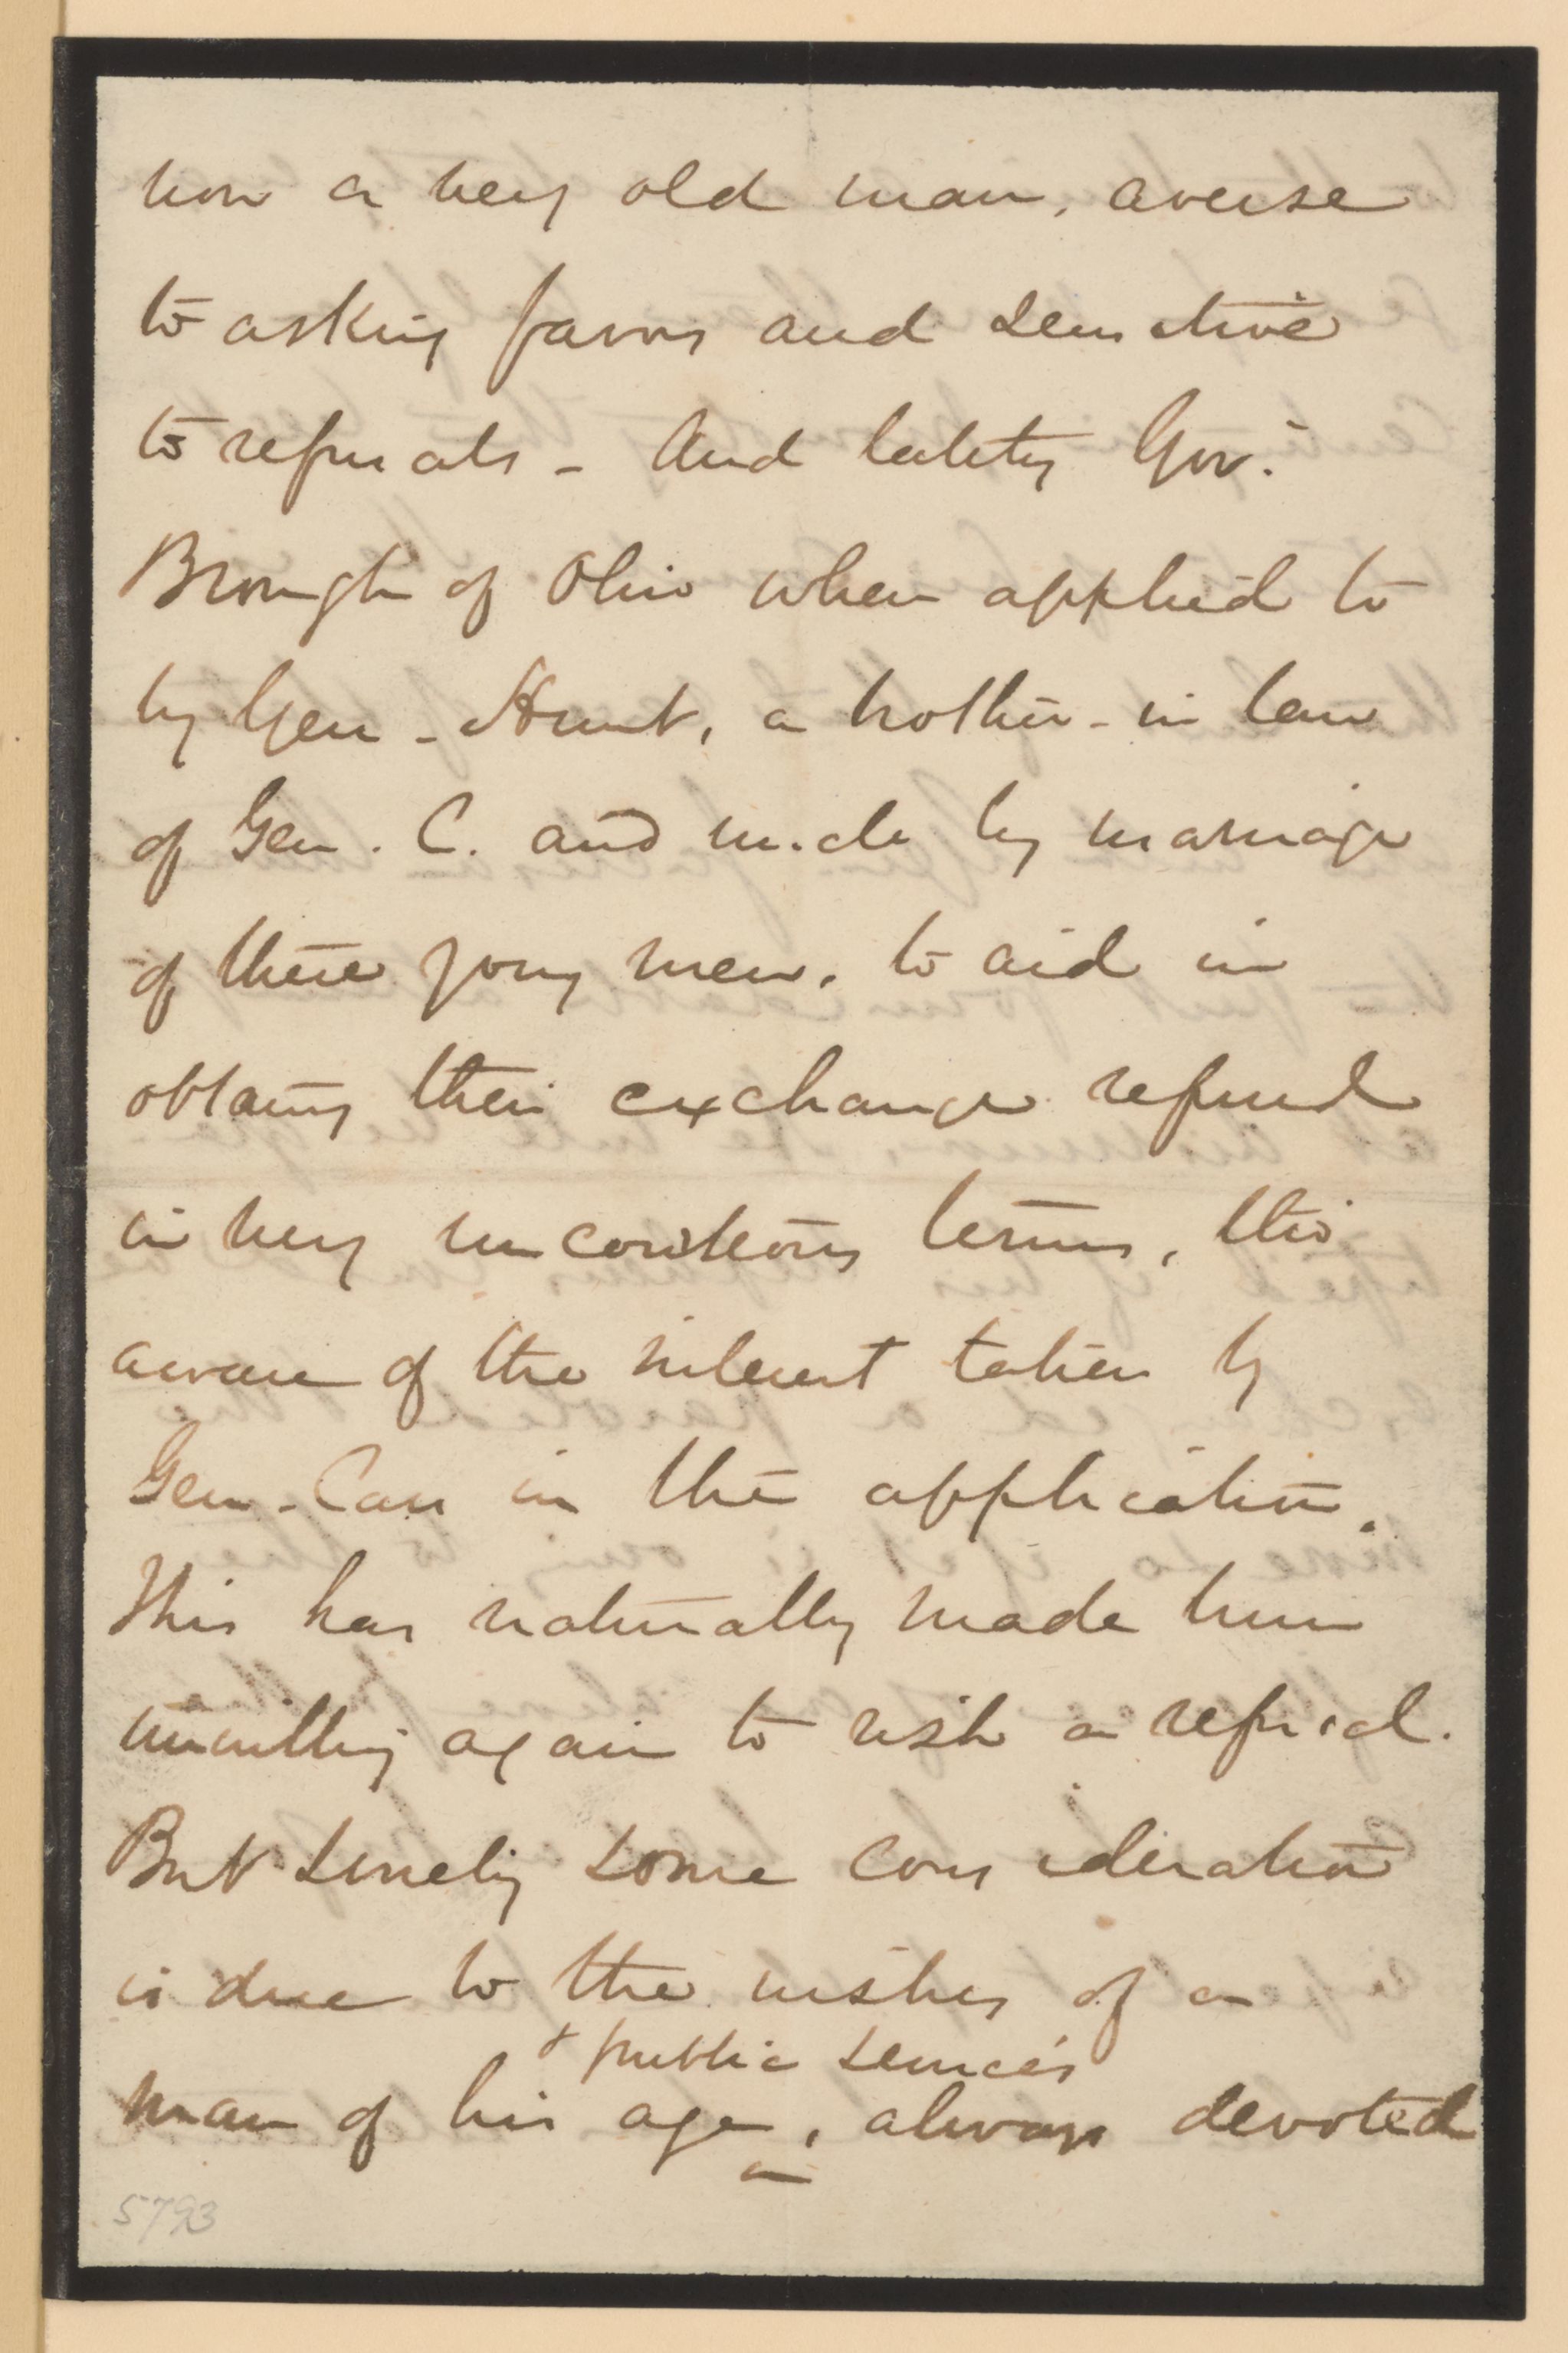 now a very old man, averse
to asking favors and sensitive
to refusals - And lately Gov.
Brough of Ohio when applied to
by Gen - Hunt, a brother-in law
of Gen. C. and uncle by marriage
of these young men, to aid in
obtaining their exchange refused
in very uncourteous terms, tho
aware of the interest taken by
Gen - Cass in the application.
This has naturally made him
unwilling again to risk a refusal.
But surely some consideration
is due to the wishes of a
& public services
man of his age, always devoted
5793